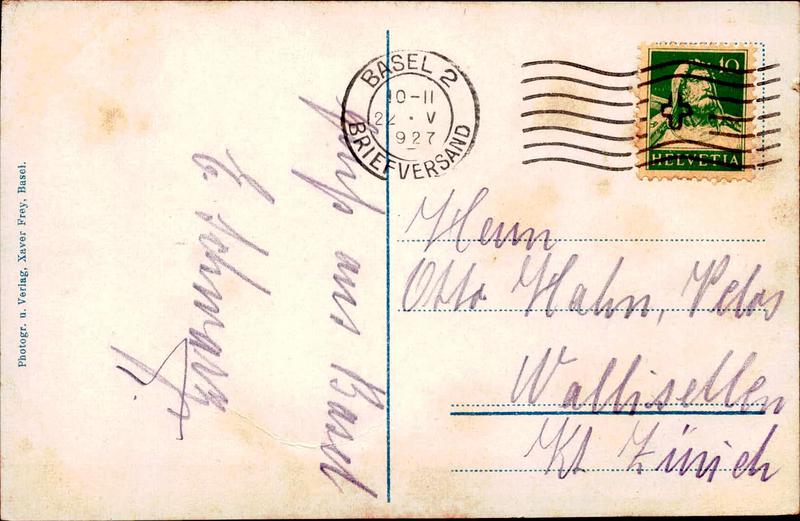 Photogr. u. Verlag, Xaver Frey, Basel.
Grüsse aus Basel
BASEL 2
10-11
22 · V
1927
BRIEFVERSAND
10
HELVETIA
Herrn
Otto Hahn, Velos
Wallisellen
Kt Zürich